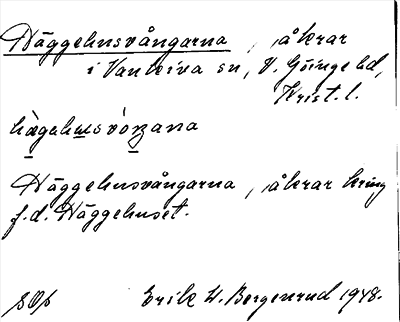 Häggehusvångarna, åkrar
i Vankiva sn, V. Göinge hd,
Krist. l.
hägahusvåŋana
Häggehusvångarna, åkrar kring
f.d. Häggehuset.
Erik W. Bergenrud 1948.